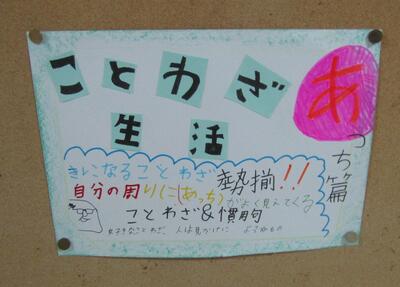 ことわざ
生活
あっち篇
きになることわざ勢揃!!
自分の周りに(あっち)がよく見えてくる
ことわざ&慣用句
好きなことわざ、人は見かけに よらぬもの